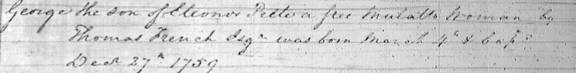 George the son of Eleonor Peete a free mulatto Woman by
Thomas French Esqr was born March 4th & bapd
Decr 27th 1759